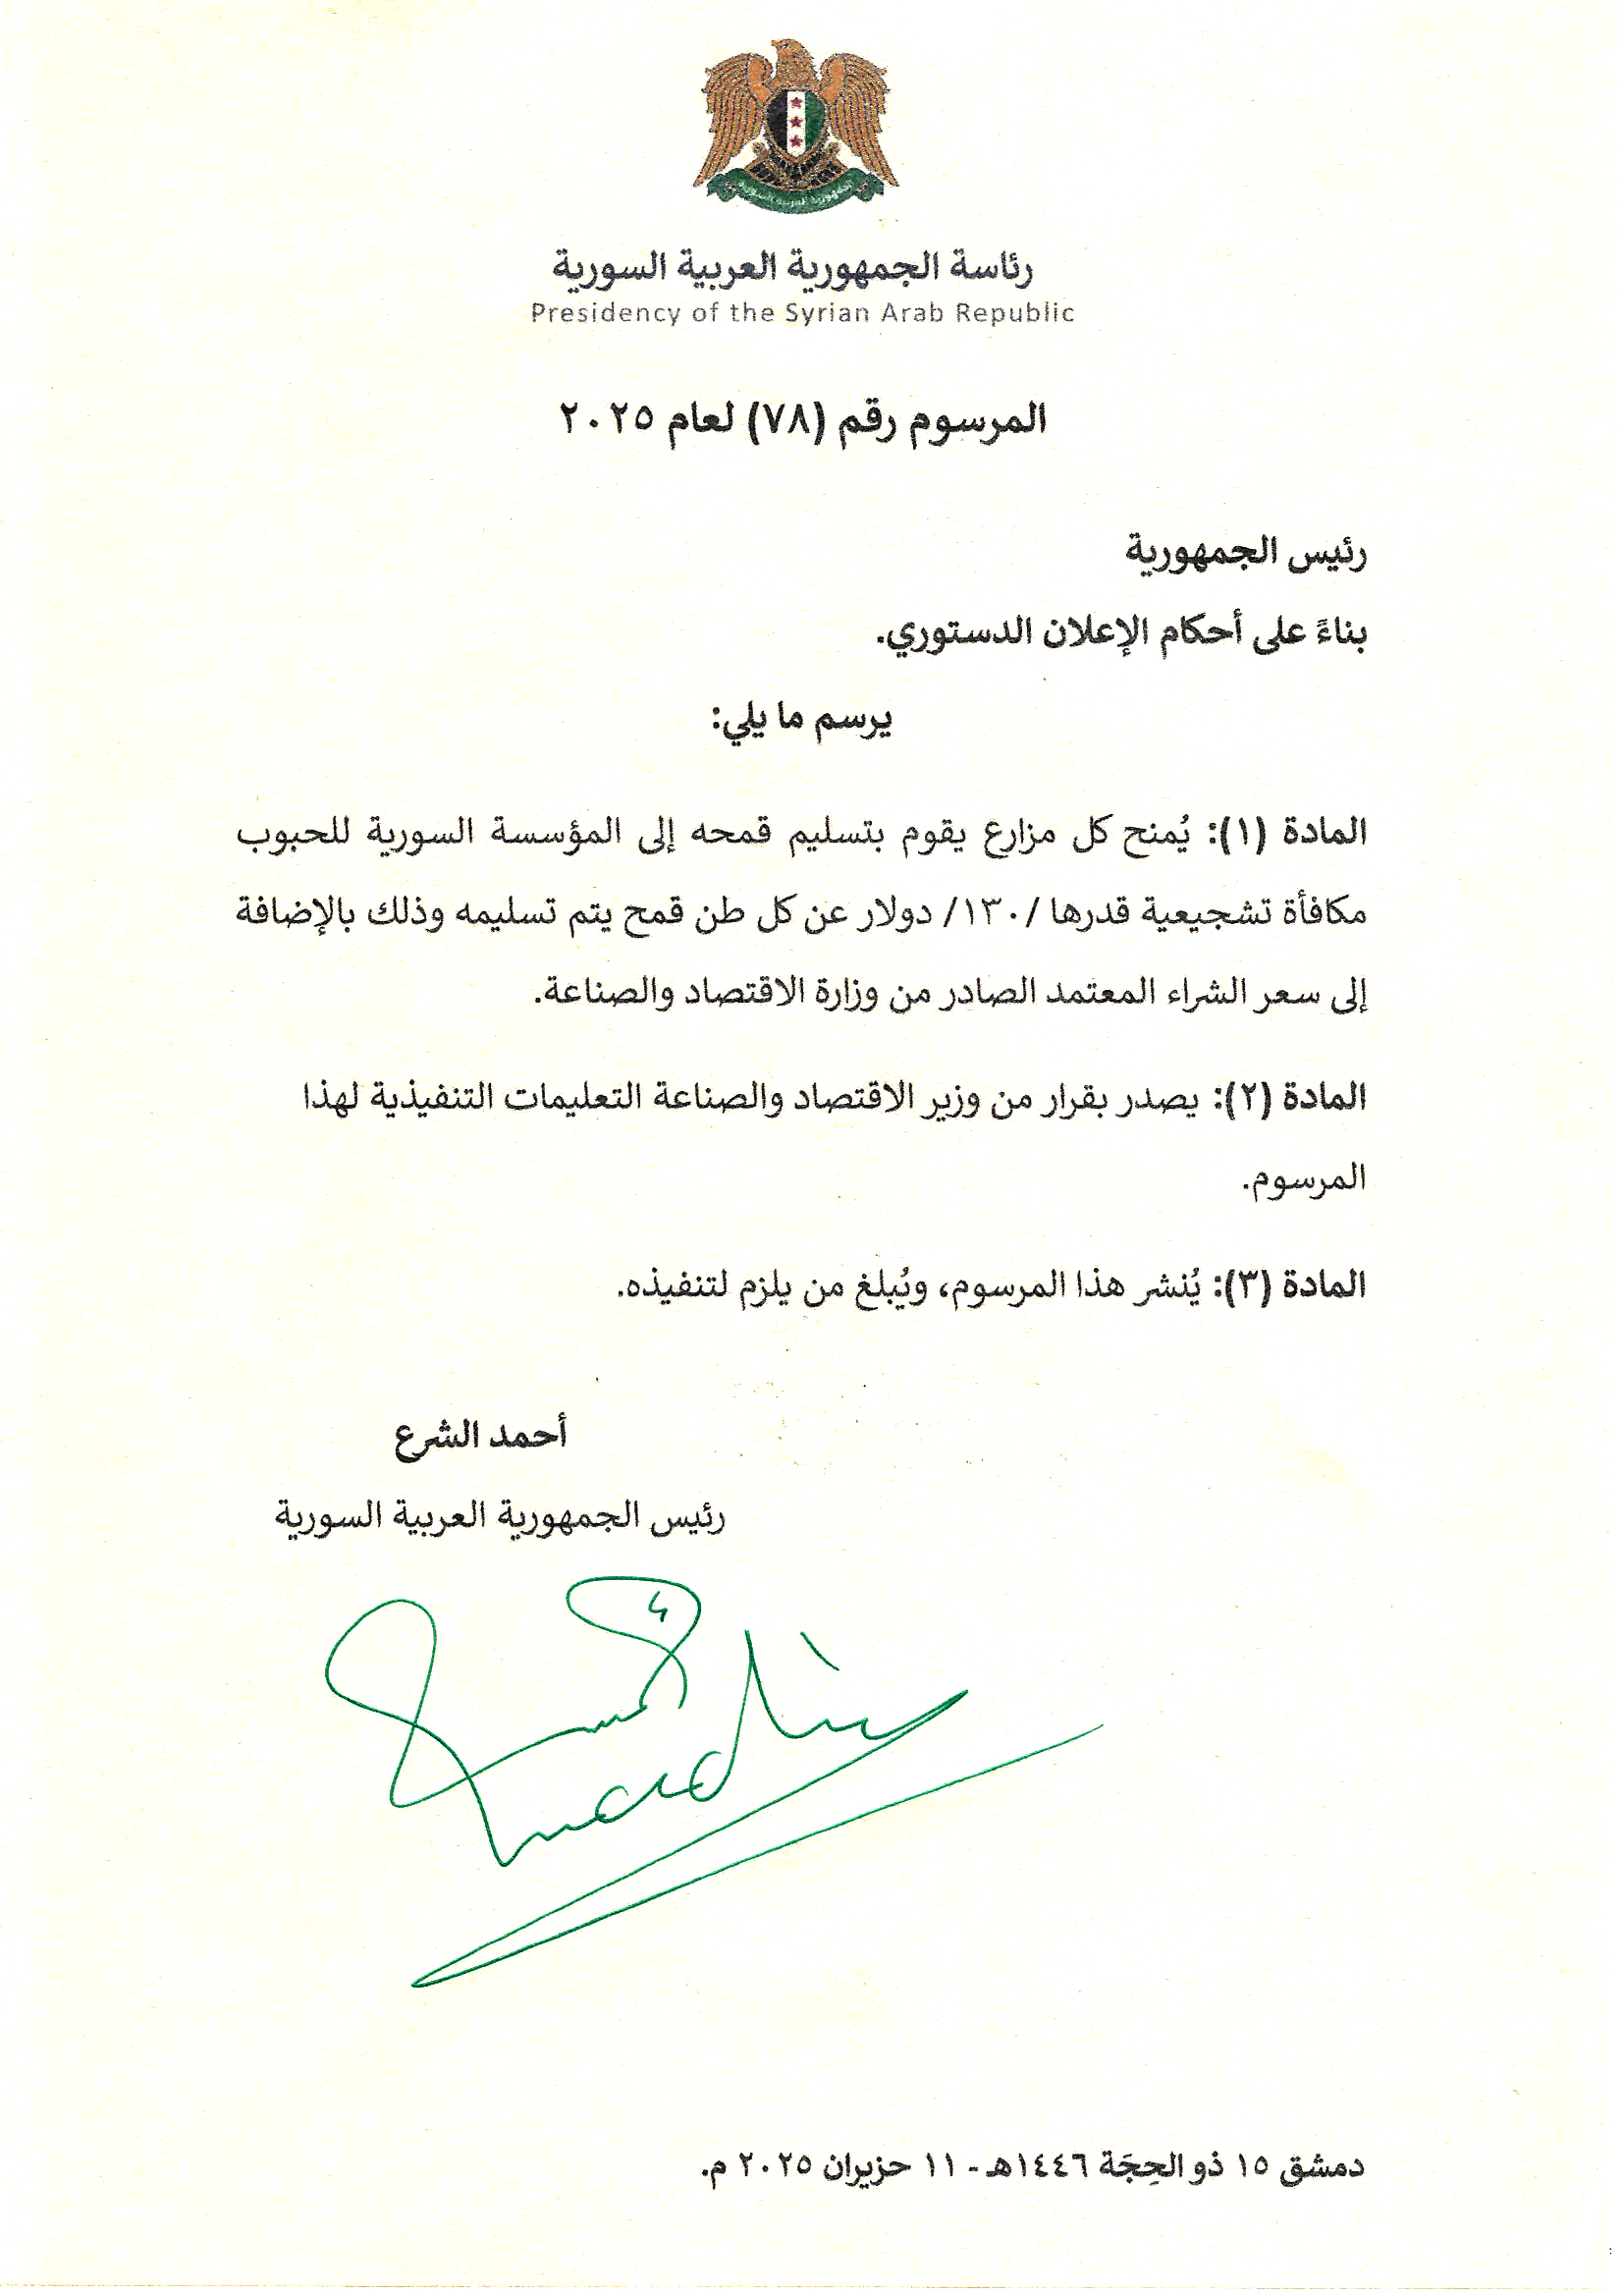 الجمهورية العربية السورية
رئاسة الجمهورية العربية السورية
Presidency of the Syrian Arab Republic
المرسوم رقم (٧٨) لعام ٢٠٢٥
رئيس الجمهورية
بناءً على أحكام الإعلان الدستوري.
يرسم ما يلي:
المادة (١): يُمنح كل مزارع يقوم بتسليم قمحه إلى المؤسسة السورية للحبوب
مكافأة تشجيعية قدرها /١٣٠/ دولار عن كل طن قمح يتم تسليمه وذلك بالإضافة
إلى سعر الشراء المعتمد الصادر من وزارة الاقتصاد والصناعة.
المادة (٢): يصدر بقرار من وزير الاقتصاد والصناعة التعليمات التنفيذية لهذا
المرسوم.
المادة (٣): يُنشر هذا المرسوم، ويُبلغ من يلزم لتنفيذه.
أحمد الشرع
رئيس الجمهورية العربية السورية
دمشق ١٥ ذو الحِجَة ١٤٤٦هـ - ١١ حزيران ٢٠٢٥ م.